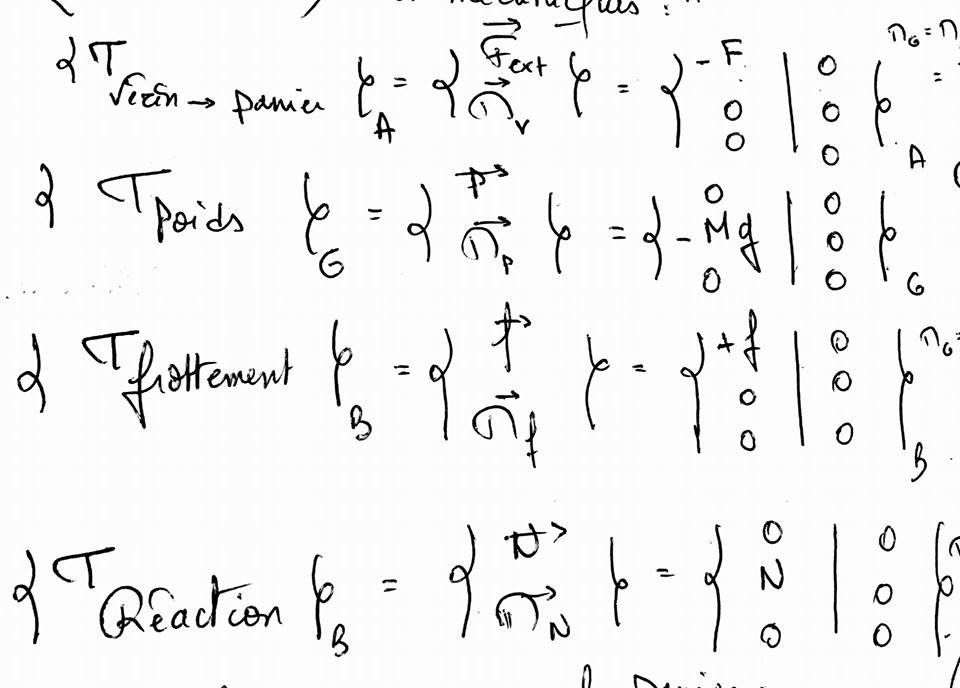 mécaniques :
{T Vérin → panier}_A = {F⃗ext M⃗v} = {-F 0 0 | 0 0 0}_A =
{T Poids}_G = {P⃗ M⃗p} = {0 -Mg 0 | 0 0 0}_G
{T frottement}_B = {f⃗ M⃗f} = {+f 0 0 | 0 0 0}_B
{T Réaction}_B = {N⃗ M⃗N} = {0 N 0 | 0 0 0}